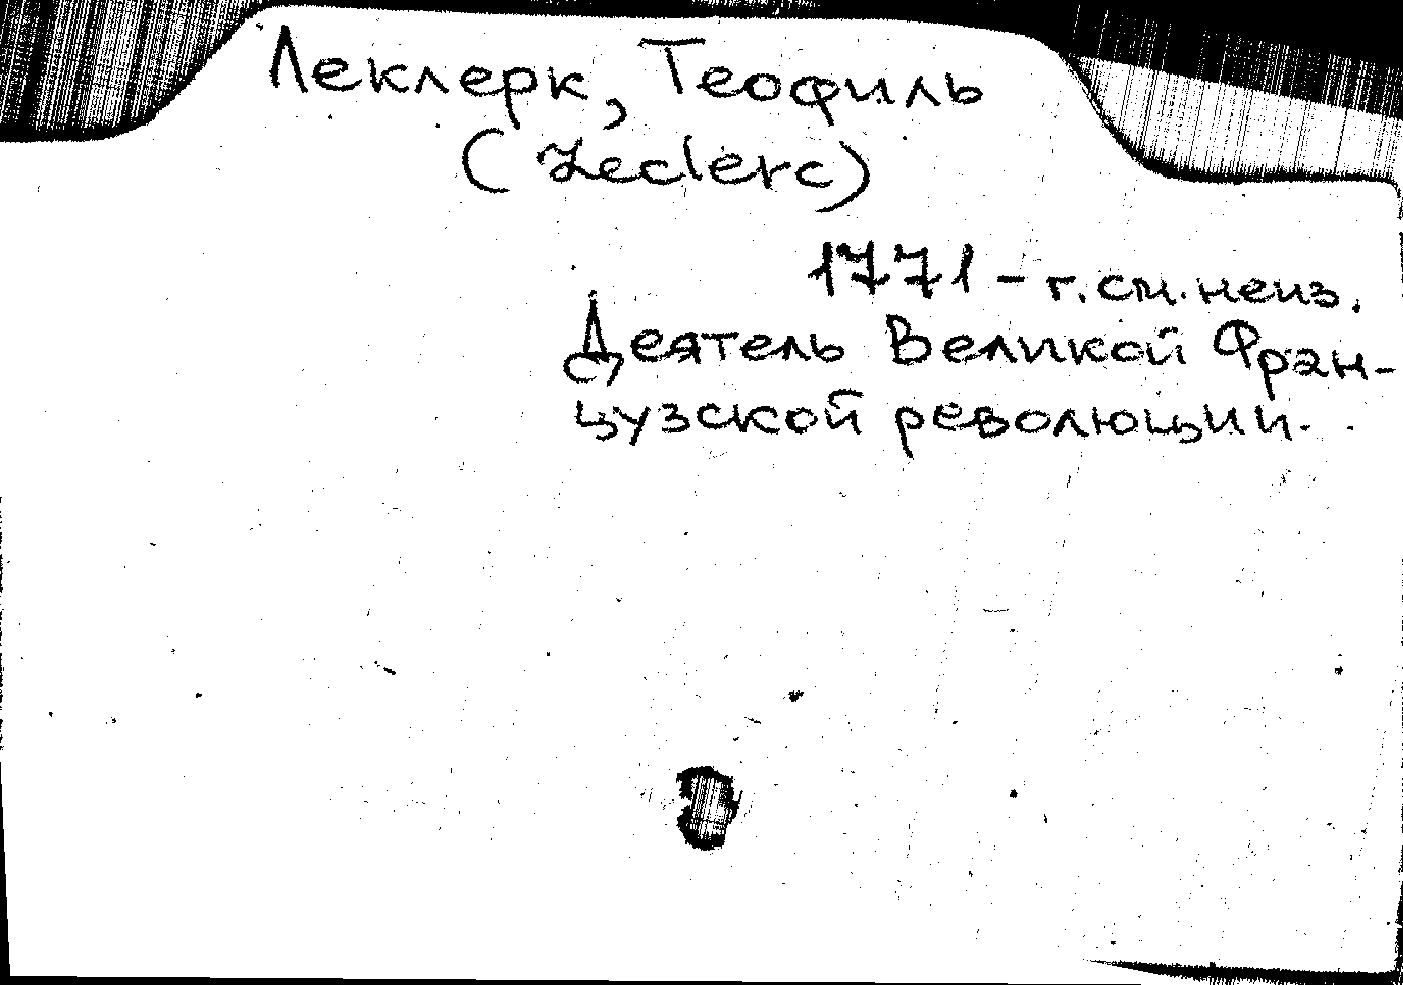 Леклерк, Теофиль
(Leclerc)
1771 - г.см.неиз.
Деятель Великой Фран-
цузской революции.